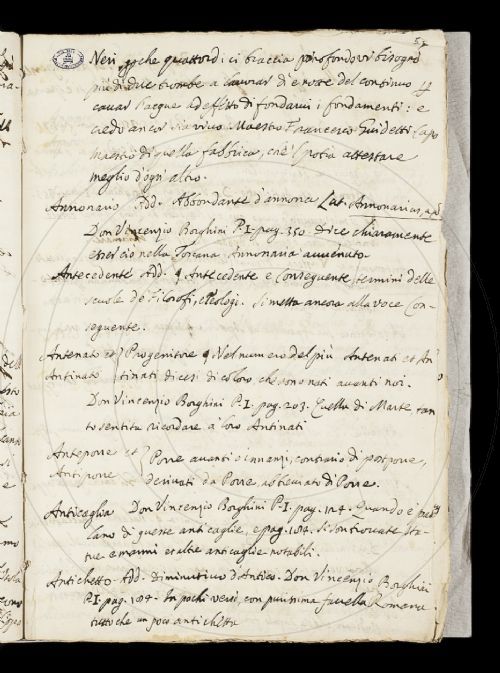 57
Neri, che quattordici braccia profondo vi bisognò
più di due trombe a lavorar dì e notte del continuo
cavar l'acque ad effetto di fondarvi i fondamenti: e
credo ancor sia vivo Maestro Francesco Guidetti Capo
Maestro di quella fabbrica, che lo potrà attestare
meglio d'ogni altro.
Annonario Add. Abbondante d'annona Lat. Annonarius,
Don Vincenzio Borghini P. I. pag. 350. Dice chiaramente
essercio nella Toscana Annonaria avvenuto.
Antecedente Add. Antecedente e Conseguente, termini delle
scuole de Filosofi, e Teologi. Si metta ancora alla voce Con-
seguente.
Antenato et Progenitore Nel numero del più Antenati et An
Antinato tinati dicesi di coloro che sono nati avanti noi.
Don Vincenzio Borghini P. I. pag. 203. Quella di Marte tan
to sentita ricordare a loro Antinati
Anteporre et Porre avanti e innanzi, contrario di posporre,
Antiporre derivati da Porre,
Anticaglia Don Vincenzio Borghini P. I. pag. 124. Quando e
lano di queste anticaglie, e pag. 184. Si son trovate Sta-
tue e marmi et altre anticaglie notabili.
Antichetto Add. diminutivo d'Antico. Don Vincenzio Borghini
P. I. pag. 184. In pochi versi, con purissima favella Romana
tutto che un poco antichetta